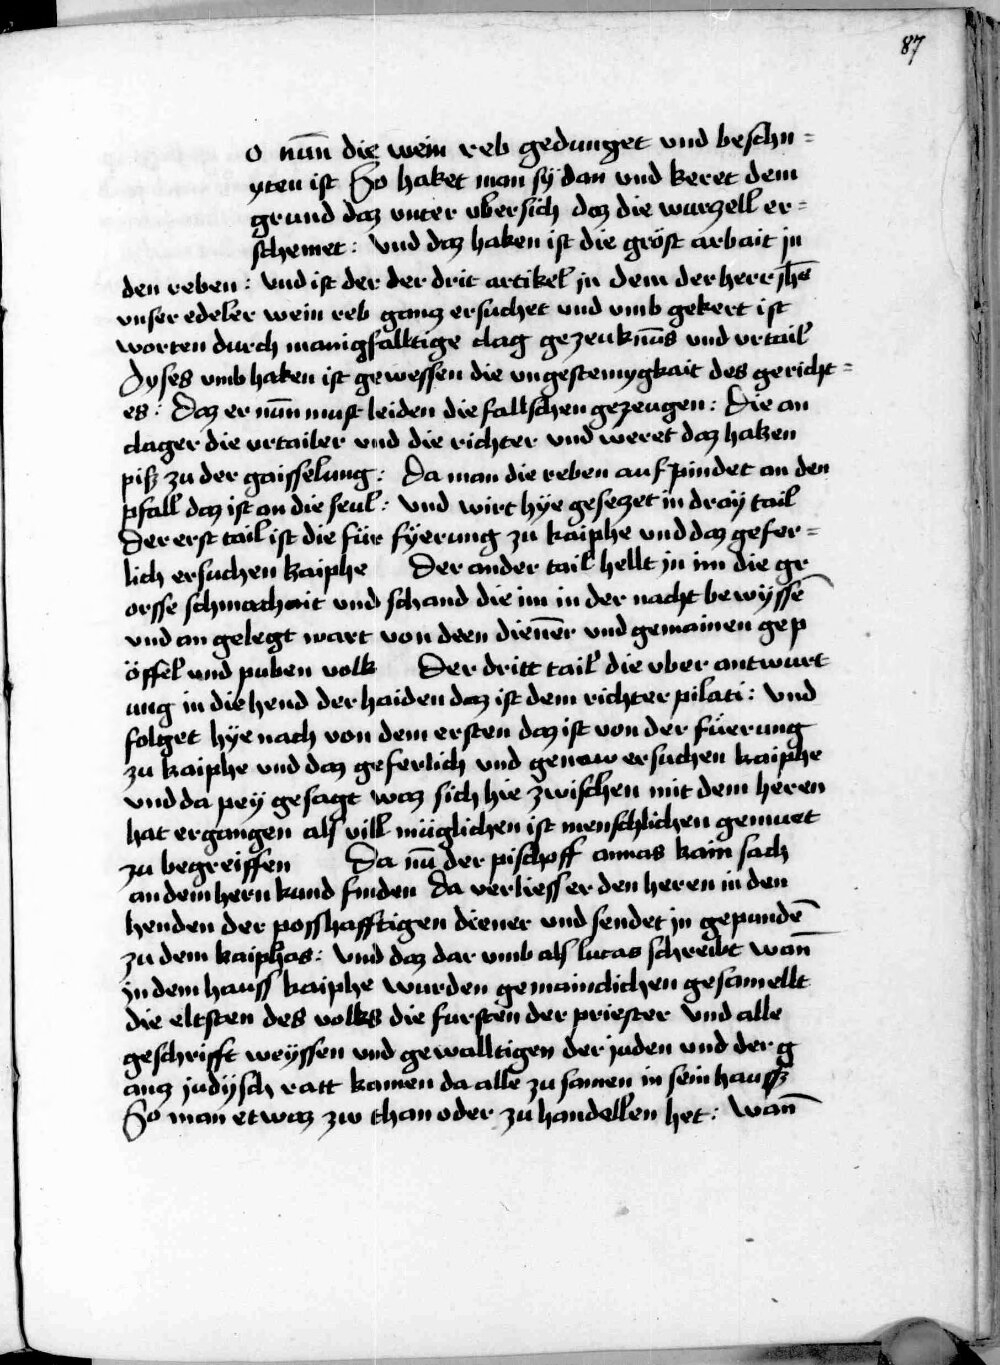 87
o nūn die wein reb gedunget vnd beschn=
yten ist So haket man sÿ dan vnd keret dem
grund daz vnter vbersich daz die wurzell er=
schemet: vnd daz haken ist die gröst arbait jn
den reben: vnd ist der der drit artikel jn dem der herr jh̄s
vnser edeler wein reb ganz ersuchet vnd vmb gekert ist
worten durch manigfalltige clag gezeuknūs vnd vrtail
Dyses vmb haken ist gewessen die vngestemygkait des gericht=
es: Daz er nūn must leiden die fallschen gezeugen: Die an
clager die vrtailer vnd die richter vnd weret daz haken
piß zu der gaisselung: Da man die reben auf pindet an den
pfall daz ist an die seul: vnd wirt hÿe gesezet in draÿ tail
Der erst tail ist die für fÿerung zu kaiphe vnd daz gefer=
lich ersuchen kaiphe Der ander tail hellt jn im die gr
orsse schmachait vnd schand die im in der nacht bewÿssē
vnd an gelegt wart von deen dienēr vnd gemainen gep
öffel vnd puben volk Der dritt tail die vber antwurt
ung in die hend der haiden daz ist dem richter pilati: vnd
folget hÿe nach von dem ersten daz ist von der füerung
zu kaiphe vnd daz geferlich vnd genaw ersuchen kaiphe
vnd da peÿ gesagt waz sich hie zwischen mit dem heren
hat ergangen als vill müglichen ist menschlichen gemuet
zu begreiffen Da nū der pischoff annas kain sach
an dem hern kund finden Da verliess er den heren in den
henden der posshafftigen diener vnd sendet jn gepundē
zu dem kaiphas: vnd daz dar vmb als lucas schreibt wan̄
jn dem hauss kaiphe wurden gemainclichen gesamellt
die eltsten des volks die fursten der priester vnd alle
geschrifft weÿssen vnd gewalltigen der juden vnd der g
anz judÿsch ratt kamen da alle zu samen in sein hauß
So man etwaz zw than oder zu handellen het: wan̄